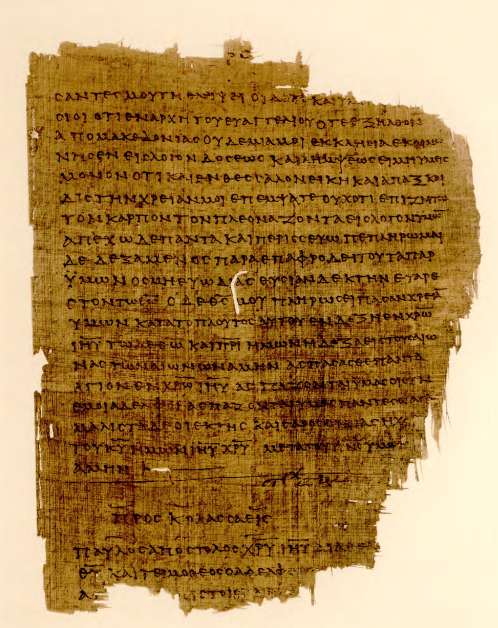 ΣΑΝΤΕΣ ΜΟΥ ΤΗ ΘΛΙΨΕΙ ΟΙΔΑΤΕ ΚΑΙ
ΟΤΙ ΕΝ ΑΡΧΗ ΤΟΥ ΕΥΑΓΓΕΛΙΟΥ ΟΤΕ ΕΞΗΛΘΟΝ
ΑΠΟ ΜΑΚΕΔΟΝΙΑΣ ΟΥΔΕΜΙΑ ΜΟΙ ΕΚΚΛΗΣΙΑ
ΕΙΣ ΛΟΓΟΝ ΔΟΣΕΩΣ ΚΑΙ ΛΗΜΨΕΩΣ ΕΙ ΜΗ ΥΜΕΙΣ
ΜΟΝΟΝ ΟΤΙ ΚΑΙ ΕΝ ΘΕΣΣΑΛΟΝΕΙΚΗ ΚΑΙ ΑΠΑΞ ΚΑΙ
ΔΙΣ ΤΗΝ ΧΡΕΙΑΝ ΜΟΙ ΕΠΕΜΨΑΤΕ ΟΥΧ ΟΤΙ ΕΠΙΖΗΤΩ
ΤΟΝ ΚΑΡΠΟΝ ΤΟΝ ΠΛΕΟΝΑΖΟΝΤΑ ΕΙΣ ΛΟΓΟΝ ΥΜΩΝ
ΑΠΕΧΩ ΔΕ ΠΑΝΤΑ ΚΑΙ ΠΕΡΙΣΣΕΥΩ ΠΕΠΛΗΡΩΜΑΙ
ΔΕ ΔΕΞΑΜΕΝΟΣ ΠΑΡΑ ΕΠΑΦΡΟΔΕΙΤΟΥ ΤΑ ΠΑΡ
ΥΜΩΝ ΟΣΜΗ ΕΥΩΔΙΑΣ ΘΥΣΙΑΝ ΔΕΚΤΗΝ ΕΥΑΡΕ
ΣΤΟΝ ΤΩ ΘΩ Ο ΔΕ ΘΣ ΜΟΥ ΠΛΗΡΩΣΕΙ ΠΑΣΑΝ ΧΡΕΙΑ
ΥΜΩΝ ΚΑΤΑ ΤΟ ΠΛΟΥΤΟΣ ΑΥΤΟΥ ΕΝ ΔΟΞΗ ΕΝ ΧΡΩ
ΙΗΥ ΤΩ ΔΕ ΘΩ ΚΑΙ ΠΡΙ ΗΜΩΝ Η ΔΟΞΑ ΕΙΣ ΤΟΥΣ ΑΙΩ
ΝΑΣ ΤΩΝ ΑΙΩΝΩΝ ΑΜΗΝ ΑΣΠΑΣΑΣΘΕ ΠΑΝΤΑ
ΑΓΙΟΝ ΕΝ ΧΡΩ ΙΗΥ ΑΣΠΑΖΟΝΤΑΙ ΥΜΑΣ ΟΙ ΣΥΝ
ΕΜΟΙ ΑΔΕΛΦΟΙ ΑΣΠΑΖΟΝΤΑΙ ΥΜΑΣ ΠΑΝΤΕΣ
ΜΑΛΙΣΤΑ ΔΕ ΟΙ ΕΚ ΤΗΣ ΚΑΙΣΑΡΟΣ ΟΙΚΙΑΣ Η Χ
ΤΟΥ ΚΥ ΗΜΩΝ ΙΗΥ ΧΡΥ ΜΕΤΑ ΤΟΥ ΠΝΣ ΥΜΩΝ
ΑΜΗΝ
ΠΡΟΣ ΚΟΛΑΣΣΑΕΙΣ
ΠΑΥΛΟΣ ΑΠΟΣΤΟΛΟΣ ΧΡΥ ΙΗΥ ΔΙΑ
ΘΥ ΚΑΙ ΤΕΙΜΟΘΕΟΣ Ο ΑΔΕΛΦ